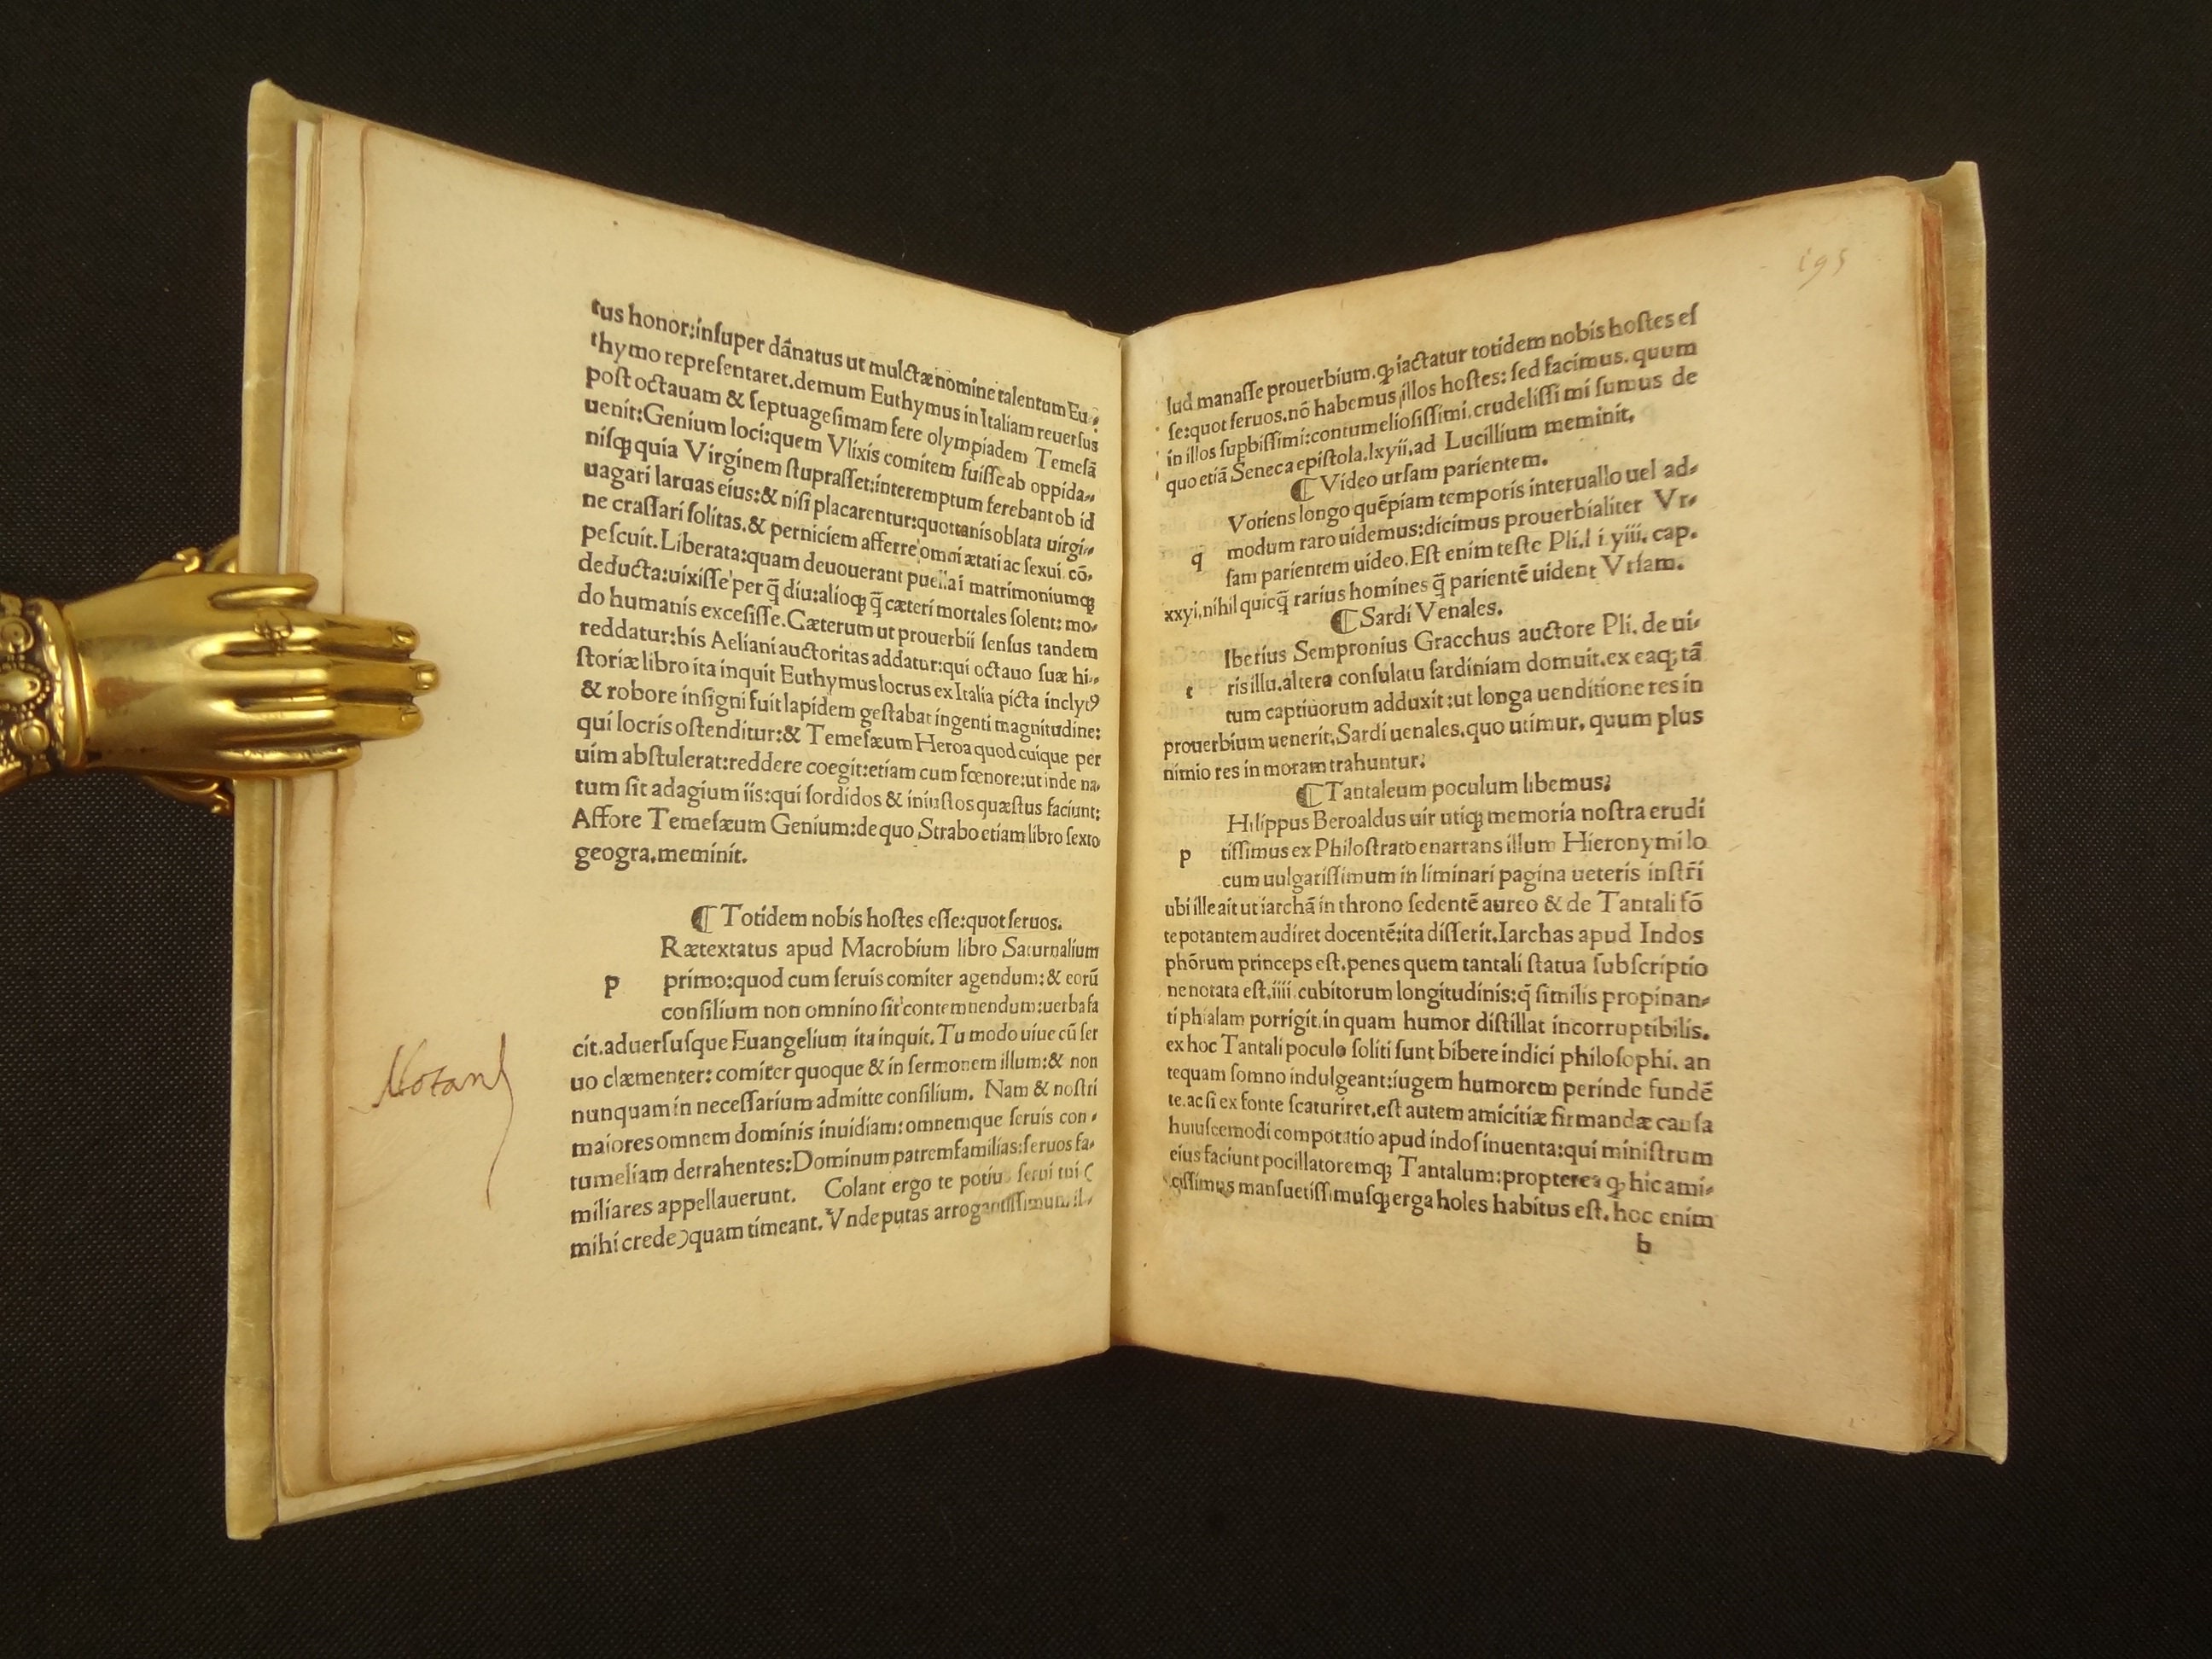 tus honor:inſuper dãnatus ut mulctæ nomine talentum Eu
thymo repreſentaret.demum Euthymus in Italiam reuerſus
poſt octauam & ſeptuageſimam fere olympiadem Temeſã
uenit:Genium loci:quem Vlixis comitem fuiſſe ab oppida⸗
niſqꝫ quia Virginem ſtupraſſet:interemptum ferebant ob id
uagari laruas eius:& niſi placarentur:quottanis oblata uirgi⸗
ne craſſari ſolitas.& perniciem afferre omni ætati ac ſexui cõ⸗
peſcuit.Liberata:quam deuouerant puella i matrimoniumqꝫ
deducta:uixiſſe per q̃ diu:alioqꝫ q̃ cæteri mortales ſolent: mo⸗
do humanis exceſiſſe.Cæterum ut prouerbii ſenſus tandem
reddatur:his Aeliani auctoritas addatur:qui octauo ſuæ hi⸗
ſtoriæ libro ita inquit Euthymus locrus ex Italia picta inclytꝰ
& robore inſigni fuit lapidem geſtabat ingenti magnitudine:
qui locris oſtenditur:& Temeſæum Heroa quod cuique per
uim abſtulerat:reddere coegit:etiam cum fœnore:ut inde na⸗
tum ſit adagium iis:qui ſordidos & iniuſtos quæſtus faciunt:
Affore Temeſæum Genium:de quo Strabo etiam libro ſexto
geogra.meminit.
¶ Totidem nobis hoſtes eſſe:quot ſeruos.
Rætextatus apud Macrobium libro Saturnalium
p primo:quod cum ſeruis comiter agendum:& eorũ
conſilium non omnino ſit contemnendum:uerba fa
cit.aduerſuſque Euangelium ita inquit.Tu modo uiue cũ ſer
uo clæmenter: comiter quoque & in ſermonem illum:& non
nunquam in neceſſarium admitte conſilium. Nam & noſtri
Notan
maiores omnem dominis inuidiam:omnemque ſeruis con⸗
tumeliam detrahentes:Dominum patremfamilias:ſeruos fa⸗
miliares appellauerunt. Colant ergo te potius ſerui tui (
mihi crede)quam timeant.Vnde putas arrogantiſſimum il⸗
195
lud manaſſe prouerbium.ꝙ iactatur totidem nobis hoſtes eſ
ſe:quot ſeruos.nõ habemus illos hoſtes: ſed facimus. quum
in illos ſuꝑbiſſimi:contumelioſiſſimi.crudeliſſimi ſumus de
quo etiã Seneca epiſtola.lxyii.ad Lucillium meminit.
¶ Video urſam parientem.
Votiens longo quẽpiam temporis interuallo uel ad⸗
q modum raro uidemus:dicimus prouerbialiter Vr⸗
ſam parientem uideo.Eſt enim teſte Pli.l i.yiii. cap.
xxyi.nihil quicq̃ rarius homines q̃ parientẽ uident Vrſam.
¶ Sardi Venales.
Iberius Sempronius Gracchus auctore Pli. de ui⸗
t ris illu.altera conſulatu ſardiniam domuit.ex eaqꝫ tã
tum captiuorum adduxit:ut longa uenditione res in
prouerbium uenerit.Sardi uenales.quo utimur. quum plus
nimio res in moram trahuntur.
¶ Tantaleum poculum libemus.
Hilippus Beroaldus uir utiqꝫ memoria noſtra erudi
p tiſſimus ex Philoſtrato enarrans illum Hieronymi lo
cum uulgatiſſimum in liminari pagina ueteris inſtr̃i
ubi ille ait ut iarchã in throno ſedentẽ aureo & de Tantali fõ
te potantem audiret docentẽ:ita diſſerit.Iarchas apud Indos
phõrum princeps eſt.penes quem tantali ſtatua ſubſcriptio
ne notata eſt.iiii.cubitorum longitudinis:q̃ ſimilis propinan⸗
ti phialam porrigit.in quam humor diſtillat incorruptibilis.
ex hoc Tantali poculo ſoliti ſunt bibere indici philoſophi. an
tequam ſomno indulgeant:iugem humorem perinde fundẽ
te.ac ſi ex fonte ſcaturiret.eſt autem amicitiæ firmandæ cauſa
huiuſcemodi compotatio apud indoſ inuenta:qui miniſtrum
eius faciunt pocillatoremqꝫ Tantalum:propterea ꝙ hic ami⸗
ciſſimus manſuetiſſimuſqꝫ erga holes habitus eſt. hoc enim
b